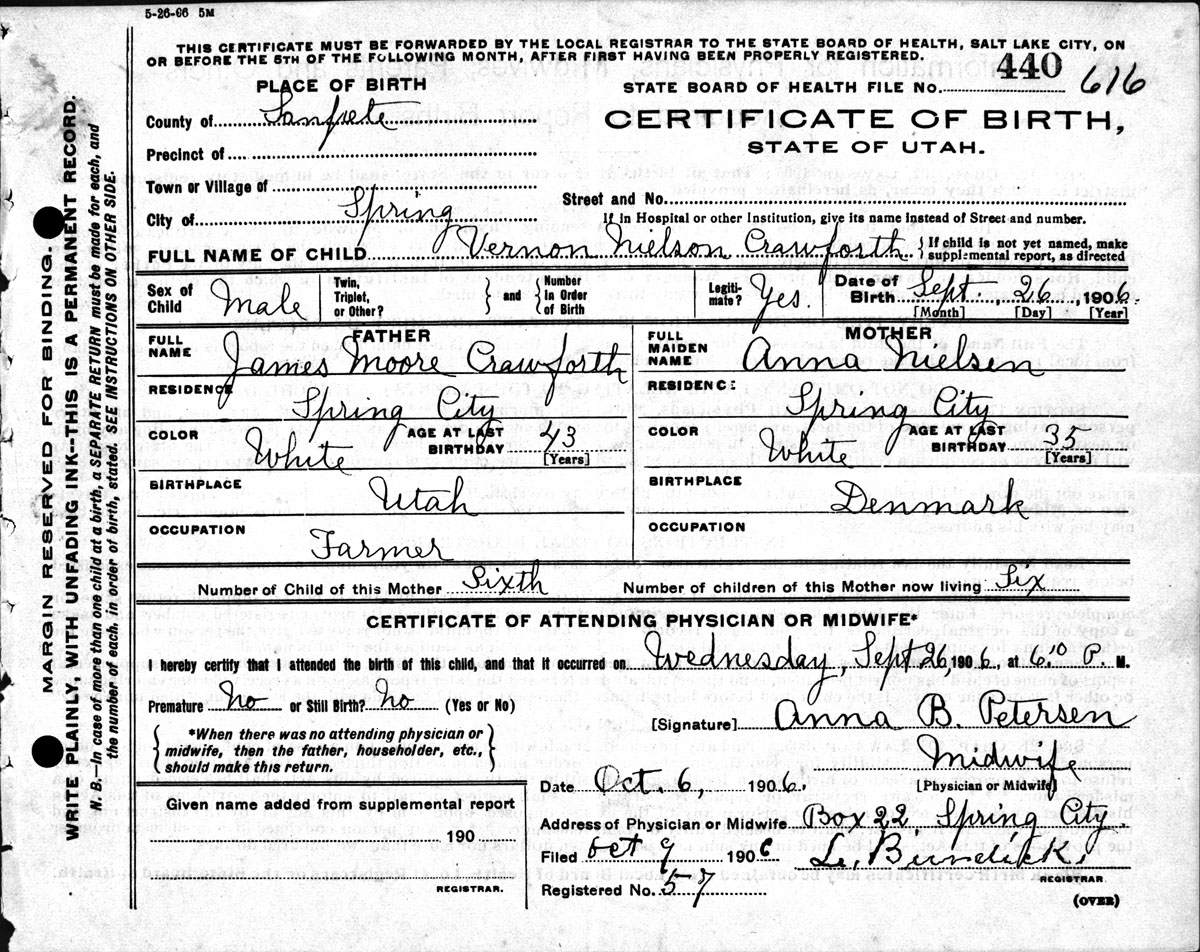 5-26-06 5M
THIS CERTIFICATE MUST BE FORWARDED BY THE LOCAL REGISTRAR TO THE STATE BOARD OF HEALTH, SALT LAKE CITY, ON
OR BEFORE THE 5TH OF THE FOLLOWING MONTH, AFTER FIRST HAVING BEEN PROPERLY REGISTERED.
PLACE OF BIRTH
STATE BOARD OF HEALTH FILE No. 440 616
County of Sanpete
CERTIFICATE OF BIRTH,
STATE OF UTAH.
Precinct of
Town or Village of
Street and No.
City of Spring
If in Hospital or other Institution, give its name instead of Street and number.
FULL NAME OF CHILD Vernon Nielson Crawforth } If child is not yet named, make supplemental report, as directed
Sex of Child Male
Twin, Triplet, or Other? } and { Number in Order of Birth
Legitimate? Yes.
Date of Birth Sept. 26, 1906.
[Month] [Day] [Year]
FATHER
FULL NAME James Moore Crawforth
RESIDENCE Spring City
COLOR White AGE AT LAST BIRTHDAY 43 [Years]
BIRTHPLACE Utah
OCCUPATION Farmer
MOTHER
FULL MAIDEN NAME Anna Nielsen
RESIDENCE Spring City
COLOR White AGE AT LAST BIRTHDAY 35 [Years]
BIRTHPLACE Denmark
OCCUPATION
Number of Child of this Mother Sixth Number of children of this Mother now living Six
CERTIFICATE OF ATTENDING PHYSICIAN OR MIDWIFE*
I hereby certify that I attended the birth of this child, and that it occurred on Wednesday, Sept, 26, 1906, at 6.10 P. M.
Premature No or Still Birth? No (Yes or No)
[Signature] Anna B. Petersen
{ *When there was no attending physician or midwife, then the father, householder, etc., should make this return. }
Midwife
Date Oct. 6, 1906. [Physician or Midwife]
Given name added from supplemental report
190
REGISTRAR.
Address of Physician or Midwife Box 22, Spring City.
Filed Oct 9 1906 L. Burdick,
REGISTRAR.
Registered No. 57
(OVER)
MARGIN RESERVED FOR BINDING.
WRITE PLAINLY, WITH UNFADING INK--THIS IS A PERMANENT RECORD.
N. B.—In case of more than one child at a birth, a SEPARATE RETURN must be made for each, and
the number of each, in order of birth, stated. SEE INSTRUCTIONS ON OTHER SIDE.